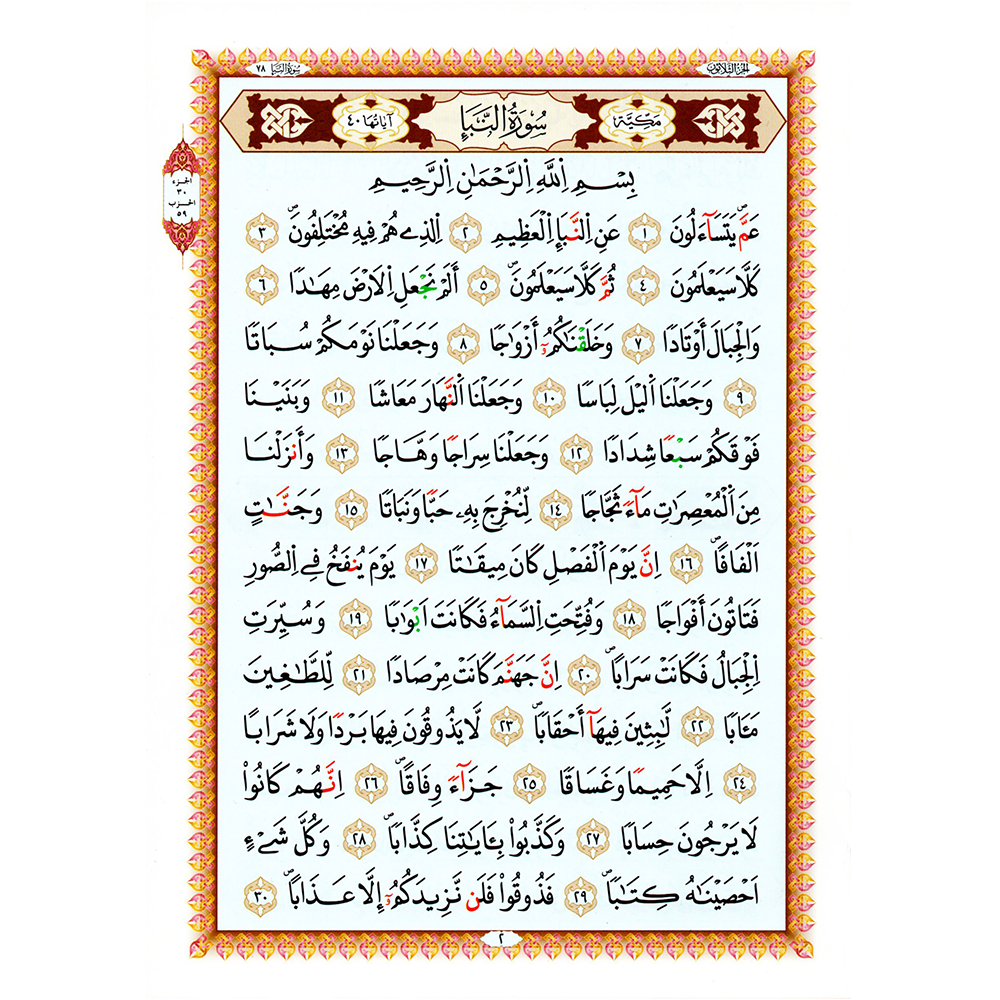 الجزء الثلاثون
سورة النبإ ٧٨
مَكِّيَّة سُورَةُ النَّبَإِ آيَاتُهَا ٤٠
الجزء
٣٠
الحزب
٥٩
بِسْمِ اِللَّهِ اِلرَّحْمَٰنِ اِلرَّحِيمِ
عَمَّ يَتَسَآءَلُونَ ١ عَنِ اِلنَّبَإِ اِلْعَظِيمِ ٢ اِلذِے هُمْ فِيهِ مُخْتَلِفُونَ ٣
كَلَّا سَيَعْلَمُونَ ٤ ثُمَّ كَلَّا سَيَعْلَمُونَ ٥ أَلَمْ نَجْعَلِ اِلَارْضَ مِهَٰدًا ٦
وَالْجِبَالَ أَوْتَادًا ٧ وَخَلَقْنَٰكُمُۥٓ أَزْوَٰجًا ٨ وَجَعَلْنَا نَوْمَكُمْ سُبَاتًا
٩ وَجَعَلْنَا اَليْلَ لِبَاسًا ١٠ وَجَعَلْنَا اَلنَّهَارَ مَعَاشًا ١١ وَبَنَيْنَا
فَوْقَكُمْ سَبْعًا شِدَادًا ١٢ وَجَعَلْنَا سِرَاجًا وَهَّاجًا ١٣ وَأَنزَلْنَا
مِنَ اَلْمُعْصِرَٰتِ مَآءً ثَجَّاجًا ١٤ لِّنُخْرِجَ بِهِۦ حَبًّا وَنَبَاتًا ١٥ وَجَنَّٰتٍ
اَلْفَافًا ١٦ اِنَّ يَوْمَ اَلْفَصْلِ كَانَ مِيقَٰتًا ١٧ يَوْمَ يُنفَخُ فِے اِلصُّورِ
فَتَاتُونَ أَفْوَاجًا ١٨ وَفُتِّحَتِ اِلسَّمَآءُ فَكَانَتَ اَبْوَٰبًا ١٩ وَسُيِّرَتِ
اِلْجِبَالُ فَكَانَتْ سَرَابًا ٢٠ اِنَّ جَهَنَّمَ كَانَتْ مِرْصَادًا ٢١ لِّلطَّٰغِينَ
مَـَٔابًا ٢٢ لَّٰبِثِينَ فِيهَآ أَحْقَابًا ٢٣ لَّا يَذُوقُونَ فِيهَا بَرْدًا وَلَا شَرَابًا
٢٤ اِلَّا حَمِيمًا وَغَسَاقًا ٢٥ جَزَآءً وِفَاقًا ٢٦ اِنَّهُمْ كَانُواْ
لَا يَرْجُونَ حِسَابًا ٢٧ وَكَذَّبُواْ بِـَٔايَٰتِنَا كِذَّابًا ٢٨ وَكُلَّ شَےْءٍ
اَحْصَيْنَٰهُ كِتَٰبًا ٢٩ فَذُوقُواْ فَلَن نَّزِيدَكُمُۥٓ إِلَّا عَذَابًا ٣٠
٢